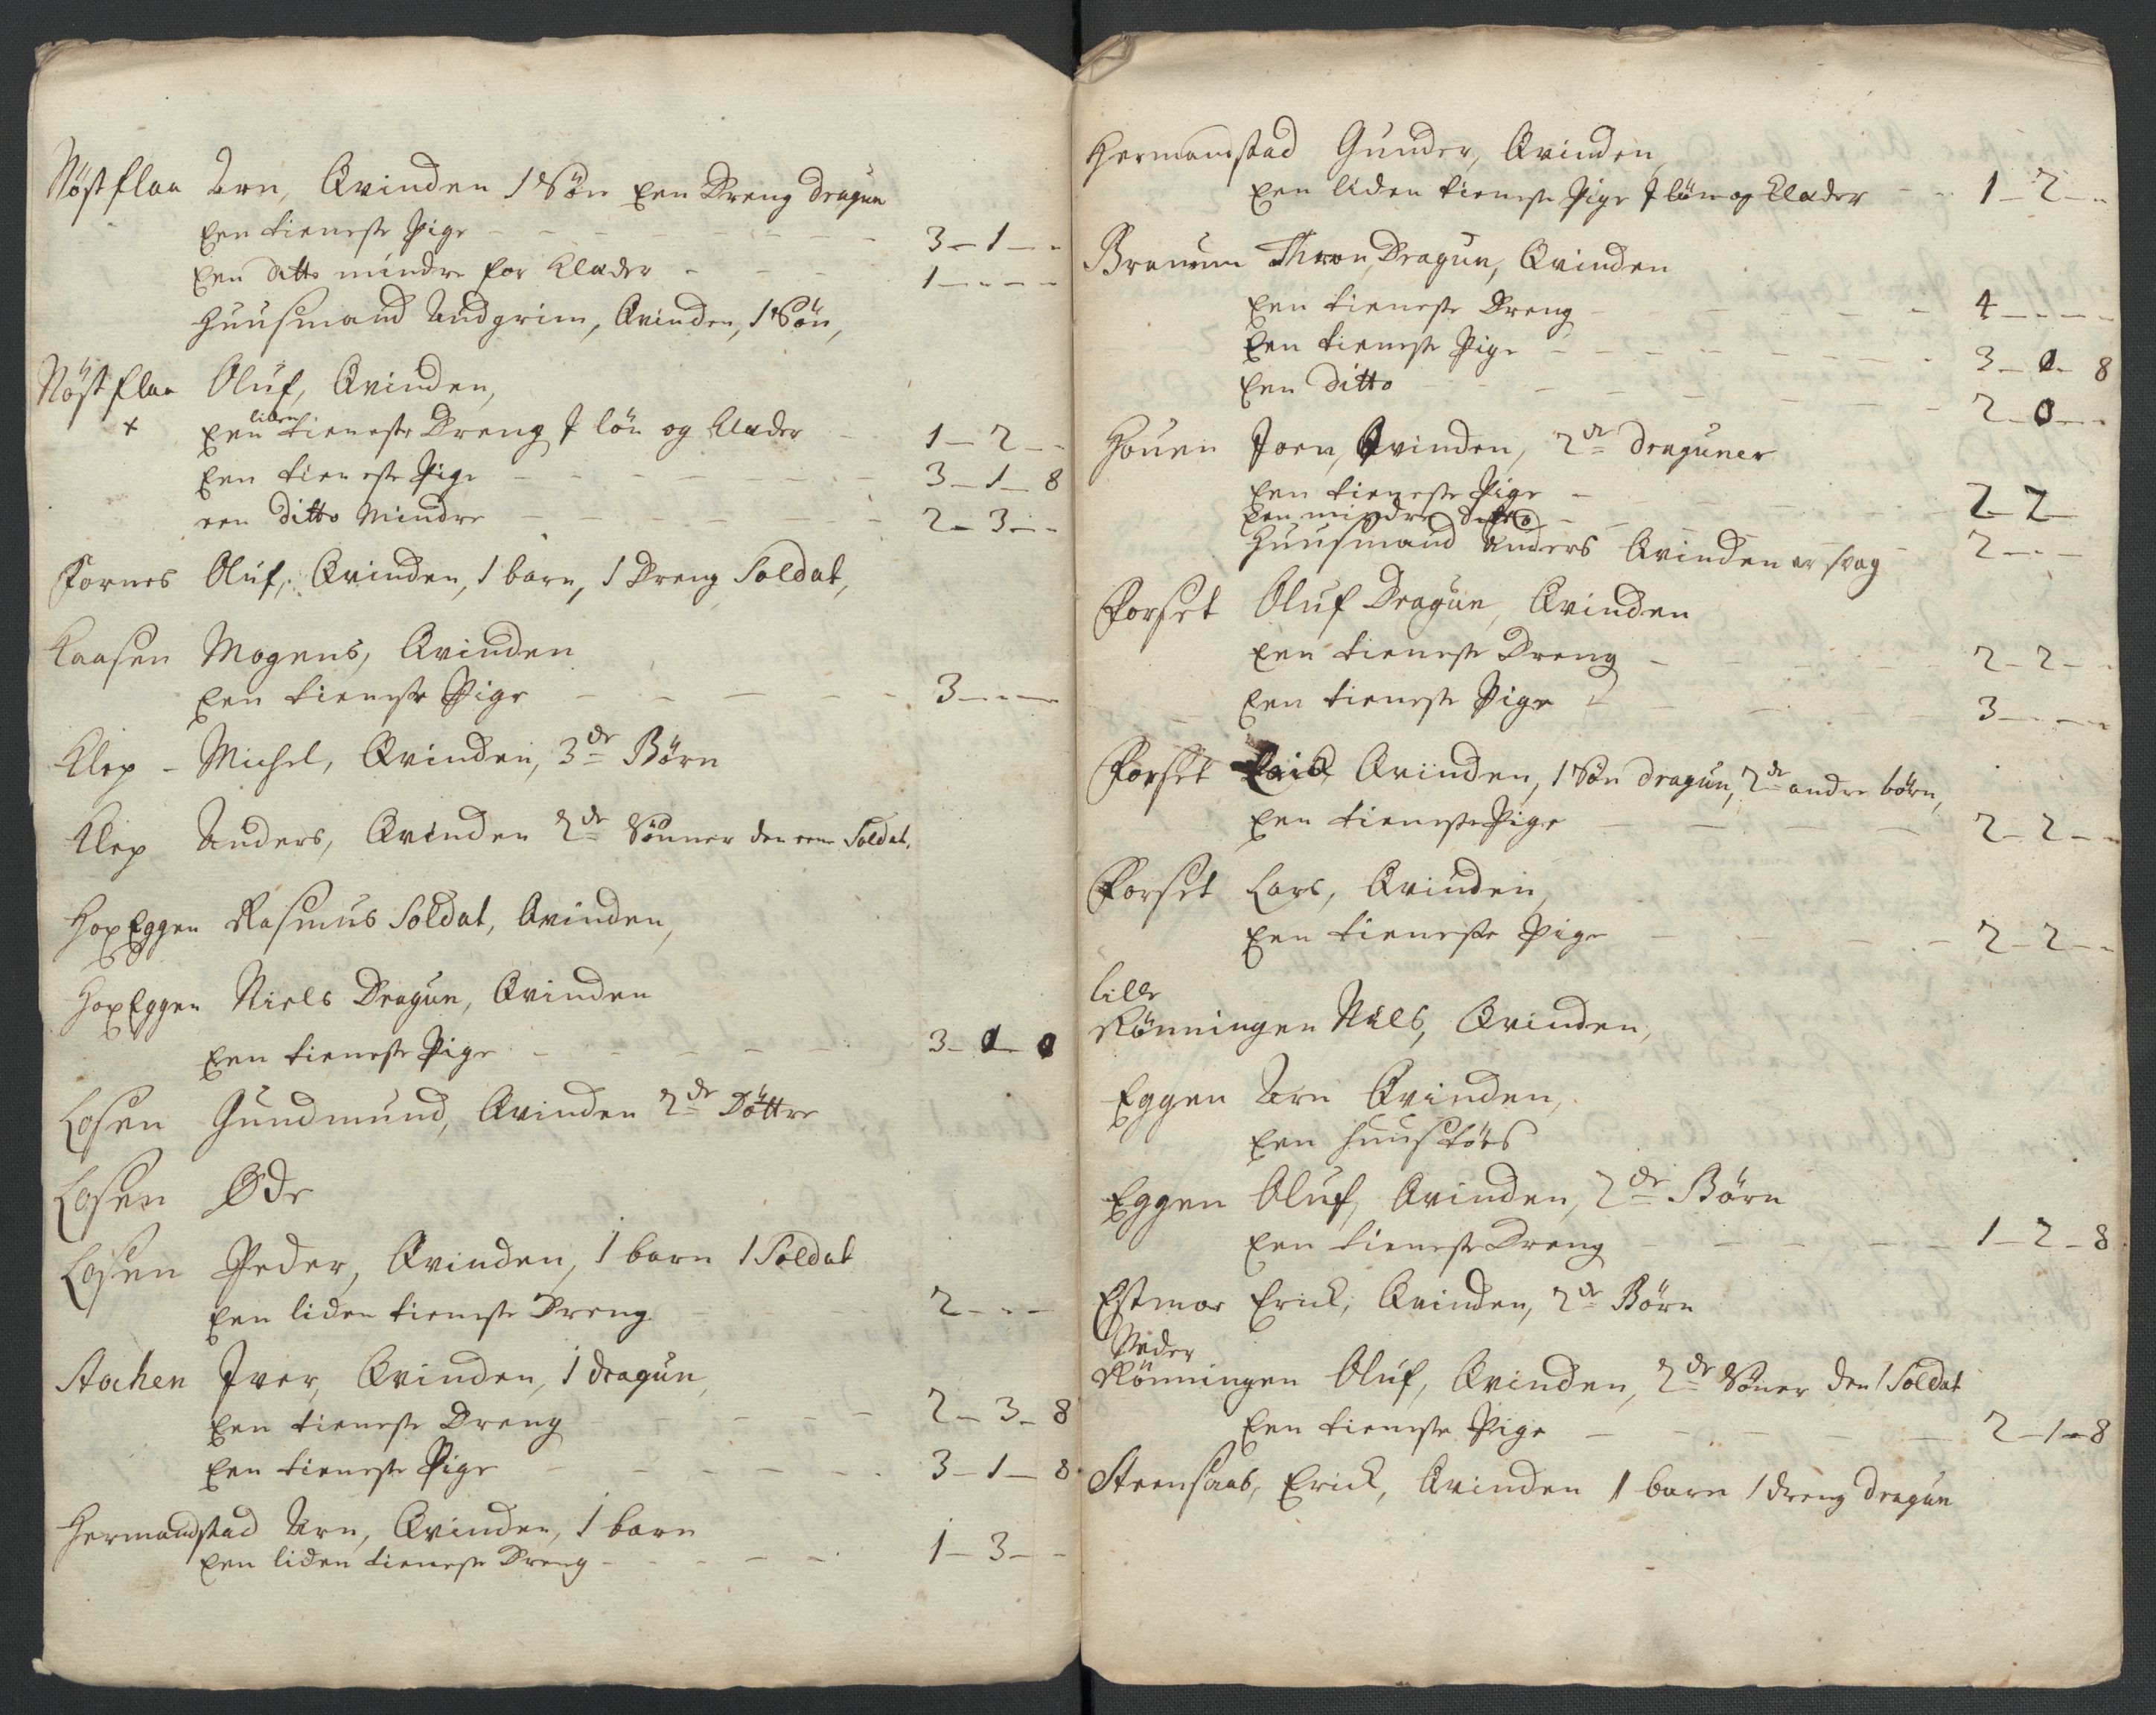 Nøstflaa Arn, Qvinden 1 Søn Een Dreng dragun
Een tieneste Pige - - - 3 - 1 - -
Een ditto mindre for Klæder - - 1 - - - -
Huusmand Andgrim, Qvinden, 1 Søn,
Nøstflaa Oluf, Qvinden,
+ Een liden tieneste Dreng J løn og Klæder - 1 - 2 - -
Een tieneste Pige - - - 3 - 1 - 8
een ditto Mindre - - - 2 - 3 - -
Fornes Oluf, Qvinden, 1 barn, 1 Dreng Soldat,
Kaasen Mogens, Qvinden
Een tieneste Pige - - - 3 - - -
Klep - Michel, Qvinden, 3de Børn
Klep Anders, Qvinden 2de Sønner den eene Soldat.
HopEggen Rasmus Soldat, Qvinden,
HopEggen Niels Dragun, Qvinden
Een tieneste Pige - - - 3 - 0 - 0
Losen Gundmund, Qvinden 2de Døttre
Losen Øde
Losen Peder, Qvinden, 1 barn 1 Soldat
Een liden tieneste Dreng 2 - - -
Aachen Iver, Qvinden, 1 dragun,
Een tieneste Dreng - - - 2 - 3 - 8
Een tieneste Pige - - - 3 - 1 - 8
Hermandstad Arn, Qvinden, 1 barn
Een liden tieneste Dreng - - - 1 - 3 - -
Hermandstad Gunder, Qvinden,
Een liden tieneste Pige J løn og Klæder - - 1 - 2 - -
Bramun Thron, Dragun, Qvinden
Een tieneste Dreng - - - 4 - - - -
Een tieneste Pige - - - 3 - 0 - 8
Een ditto - - - 2 - 0 - -
Houen Joen, Qvinden, 2de draguner
Een tieneste Pige - - - 2 - 2 -
Een mindre ditto - - - 2 - - -
Huusmand Anders Qvinden er svag
Forset Oluf Dragun, Qvinden
Een tieneste Dreng - - - 2 - 2 - -
Een tieneste Pige - - - 3 - - - -
Forset Qvinden, 1 Søn dragun, 2de andre børn,
Een tieneste Pige - - - 2 - 2 - -
Forset Lars, Qvinden,
Een tieneste Pige - - - 2 - 2 - -
lille
Rønningen Nils, Qvinden,
Eggen Arn Qvinden,
Een huustøes
Eggen Oluf, Qvinden, 2de Børn
Een tieneste Dreng - - - 1 - 2 - 8
Estmoe Erick, Qvinden, 2de Børn
Neder
Rønningen Oluf, Qvinden, 2de Søner den 1 Soldat
Een tieneste Pige - - - 2 - 1 - 8
Steensaas, Erick, Qvinden 1 barn 1 dreng dragun